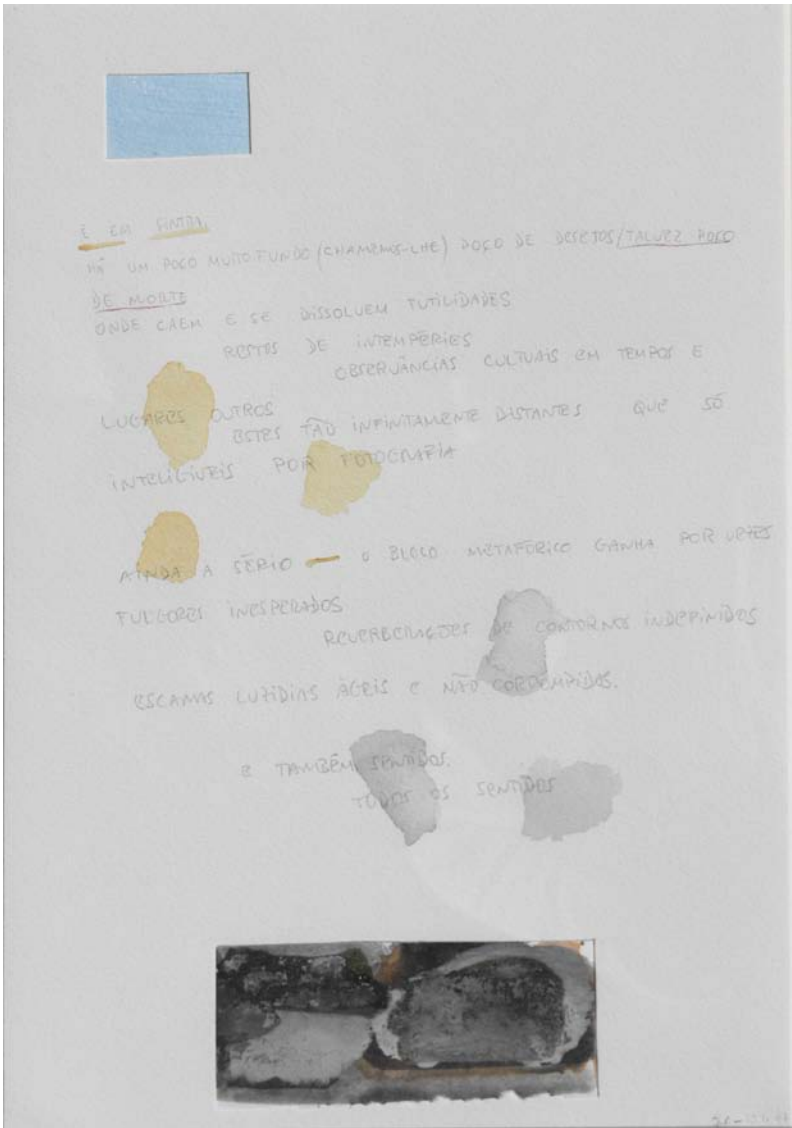 E EM SINTRA
HÁ UM POÇO MUITO FUNDO (CHAMEMOS-LHE) POÇO DE DESEJOS/TALVEZ POÇO
DE MORTE
ONDE CAEM E SE DISSOLVEM FUTILIDADES
RESTOS DE INTEMPÉRIES
OBSERVÂNCIAS CULTUAIS EM TEMPOS E
LUGARES OUTROS
ESTES TÃO INFINITAMENTE DISTANTES QUE SÓ
INTELIGÍVEIS POR FOTOGRAFIA
AINDA A SÉRIO — O BLOCO METAFÓRICO GANHA POR VEZES
FULGORES INESPERADOS
REVERBERAÇÕES DE CONTORNOS INDEFINIDOS
ESCAMAS LUZIDIAS ÁGEIS E NÃO CORROMPIDAS.
E TAMBÉM SENTIDOS.
TODOS OS SENTIDOS